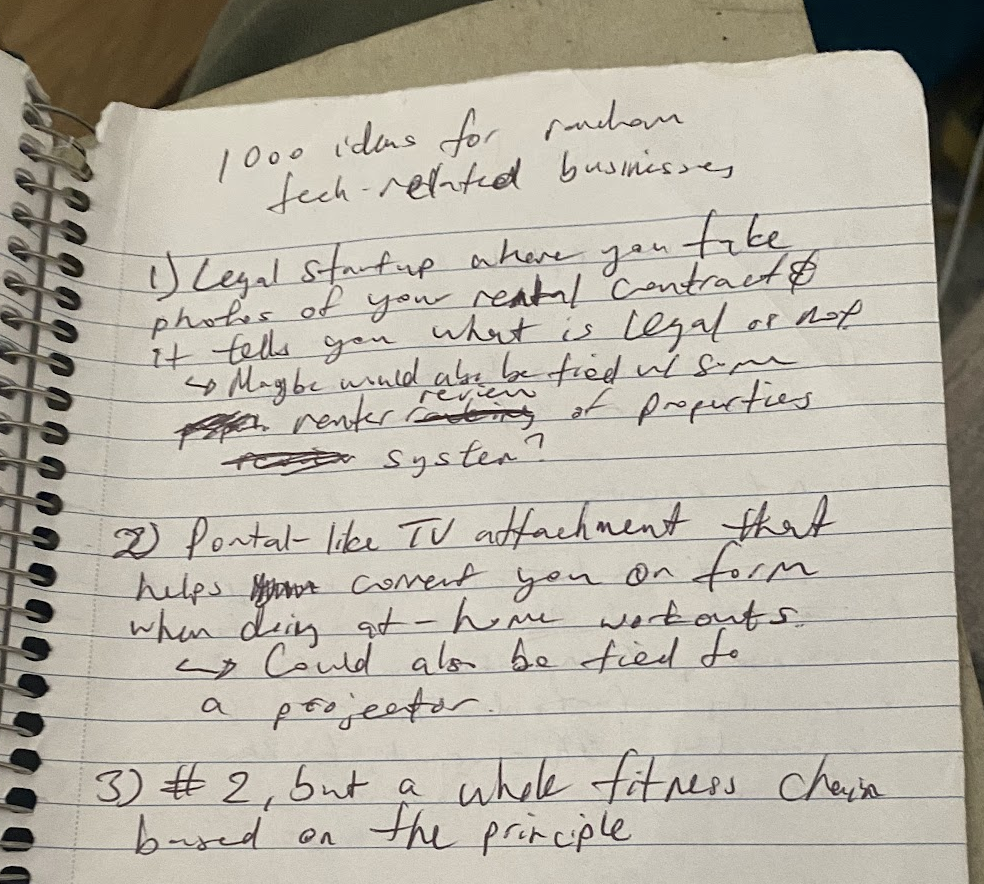 1000 ideas for random
tech-related businesses
1) Legal startup where you take
photos of your rental contract &
it tells you what is legal or not
↳ Maybe would also be tied w/ some
renter review of properties
system?
2) Portal-like TV attachment that
helps correct you on form
when doing at-home workouts.
↳ Could also be tied to
a projector.
3) #2, but a whole fitness chain
based on the principle